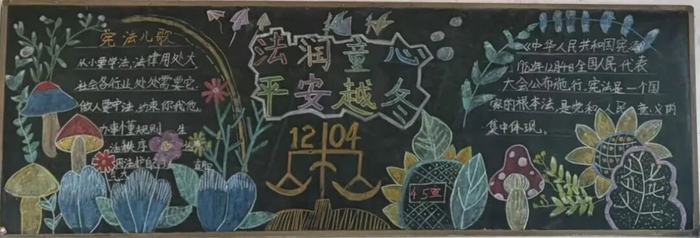 宪法儿歌
从小要学法,法律用处大
社会各行业,处处需要它.
做人要守法,约束你我他,
办事懂规则
法秩序
法润童心
平安越冬
12 04
45班
《中华人民共和国宪法》
1982年12月4日全国人民代表
大会公布施行,宪法是一个国
家的根本法,是党和人民意义的
集中体现。